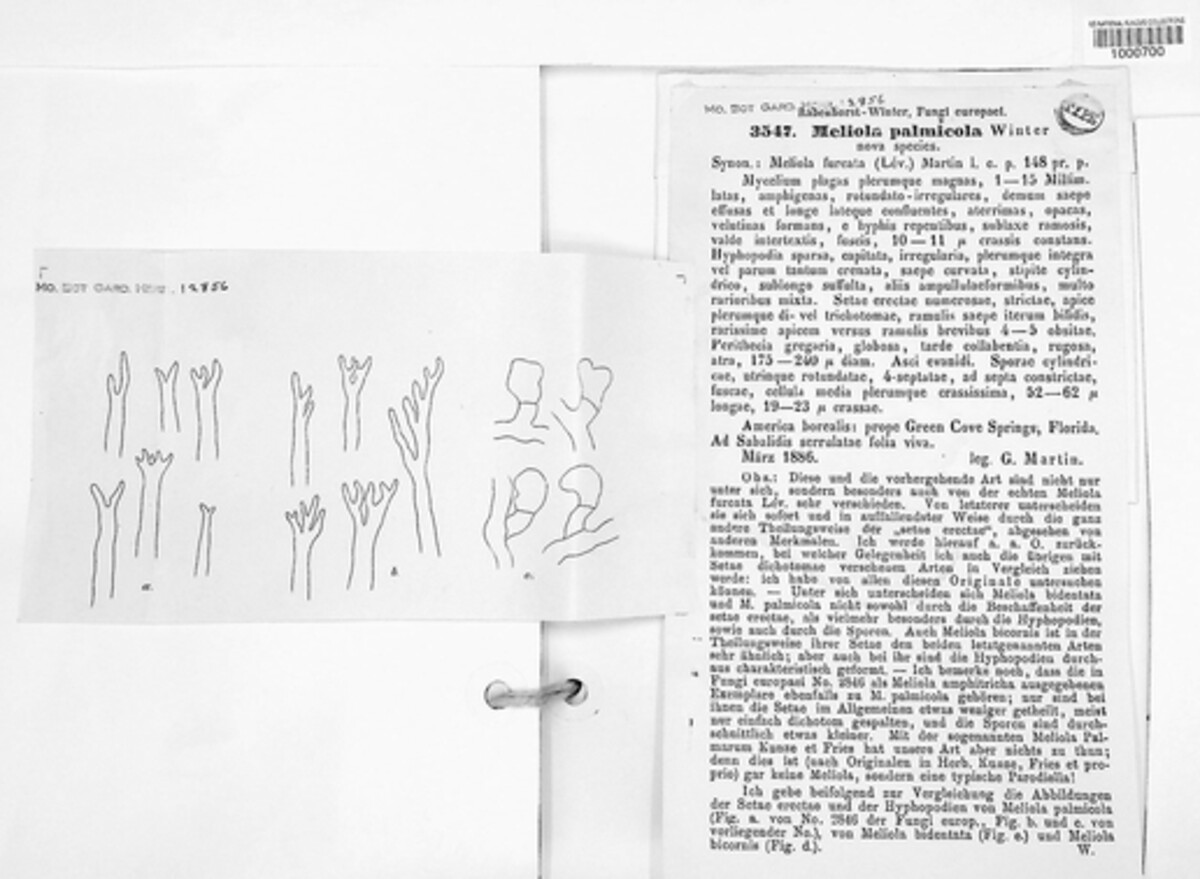 US NATIONAL FUNGUS COLLECTIONS
1000700
MO. BOT GARD. HERB. 12856
a.
b.
c.
MO. BOT GARD. HERB. 12856
Rabenhorst-Winter, Fungi europaei.
TYPE
3547. Meliola palmicola Winter
nova species.
Synon.: Meliola furcata (Lév.) Martin l. c. p. 148 pr. p.
Mycelium plagas plerumque magnas, 1—15 Millim.
latas, amphigenas, rotundato-irregulares, demum saepe
effusas et longe lateque confluentes, aterrimas, opacas,
velutinas formans, e hyphis repentibus, sublaxe ramosis,
valde intertextis, fuscis, 10—11 μ crassis constans.
Hyphopodia sparsa, capitata, irregularia, plerumque integra
vel parum tantum crenata, saepe curvata, stipite cylin-
drico, sublongo suffulta, aliis ampullulaeformibus, multo
rarioribus mixta. Setae erectae numerosae, strictae, apice
plerumque di- vel trichotomae, ramulis saepe iterum bifidis,
rarissime apicem versus ramulis brevibus 4—5 obsitae.
Perithecia gregaria, globosa, tarde collabentia, rugosa,
atra, 175—240 μ diam. Asci evanidi. Sporae cylindri-
cae, utrinque rotundatae, 4-septatae, ad septa constrictae,
fuscae, cellula media plerumque crassissima, 52—62 μ
longae, 19—23 μ crassae.
America borealis: prope Green Cove Springs, Florida.
Ad Sabalidis serrulatae folia viva.
März 1886. leg. G. Martin.
Obs.: Diese und die vorhergehende Art sind nicht nur
unter sich, sondern besonders auch von der echten Meliola
furcata Lév. sehr verschieden. Von letzterer unterscheiden
sie sich sofort und in auffallendster Weise durch die ganz
andere Theilungsweise der „setae erectae“, abgesehen von
anderen Merkmalen. Ich werde hierauf a. a. O. zurück-
kommen, bei welcher Gelegenheit ich auch die übrigen mit
Setae dichotomae versehenen Arten in Vergleich ziehen
werde: ich habe von allen diesen Originale untersuchen
können. — Unter sich unterscheiden sich Meliola bidentata
und M. palmicola nicht sowohl durch die Beschaffenheit der
setae erectae, als vielmehr besonders durch die Hyphopodien,
sowie auch durch die Sporen. Auch Meliola bicornis ist in der
Theilungsweise ihrer Setae den beiden letztgenannten Arten
sehr ähnlich; aber auch bei ihr sind die Hyphopodien durch-
aus charakteristisch geformt. — Ich bemerke noch, dass die in
Fungi europaei No. 2846 als Meliola amphitricha ausgegebenen
Exemplare ebenfalls zu M. palmicola gehören; nur sind bei
ihnen die Setae im Allgemeinen etwas weniger getheilt, meist
nur einfach dichotom gespalten, und die Sporen sind durch-
schnittlich etwas kleiner. Mit der sogenannten Meliola Pal-
marum Kunze et Fries hat unsere Art aber nichts zu thun;
denn dies ist (nach Originalen in Herb. Kunze, Fries et pro-
prio) gar keine Meliola, sondern eine typische Parodiella!
Ich gebe beifolgend zur Vergleichung die Abbildungen
der Setae erectae und der Hyphopodien von Meliola palmicola
(Fig. a. von No. 2846 der Fungi europ., Fig. b. und c. von
vorliegender No.), von Meliola bidentata (Fig. e.) und Meliola
bicornis (Fig. d.).
W.